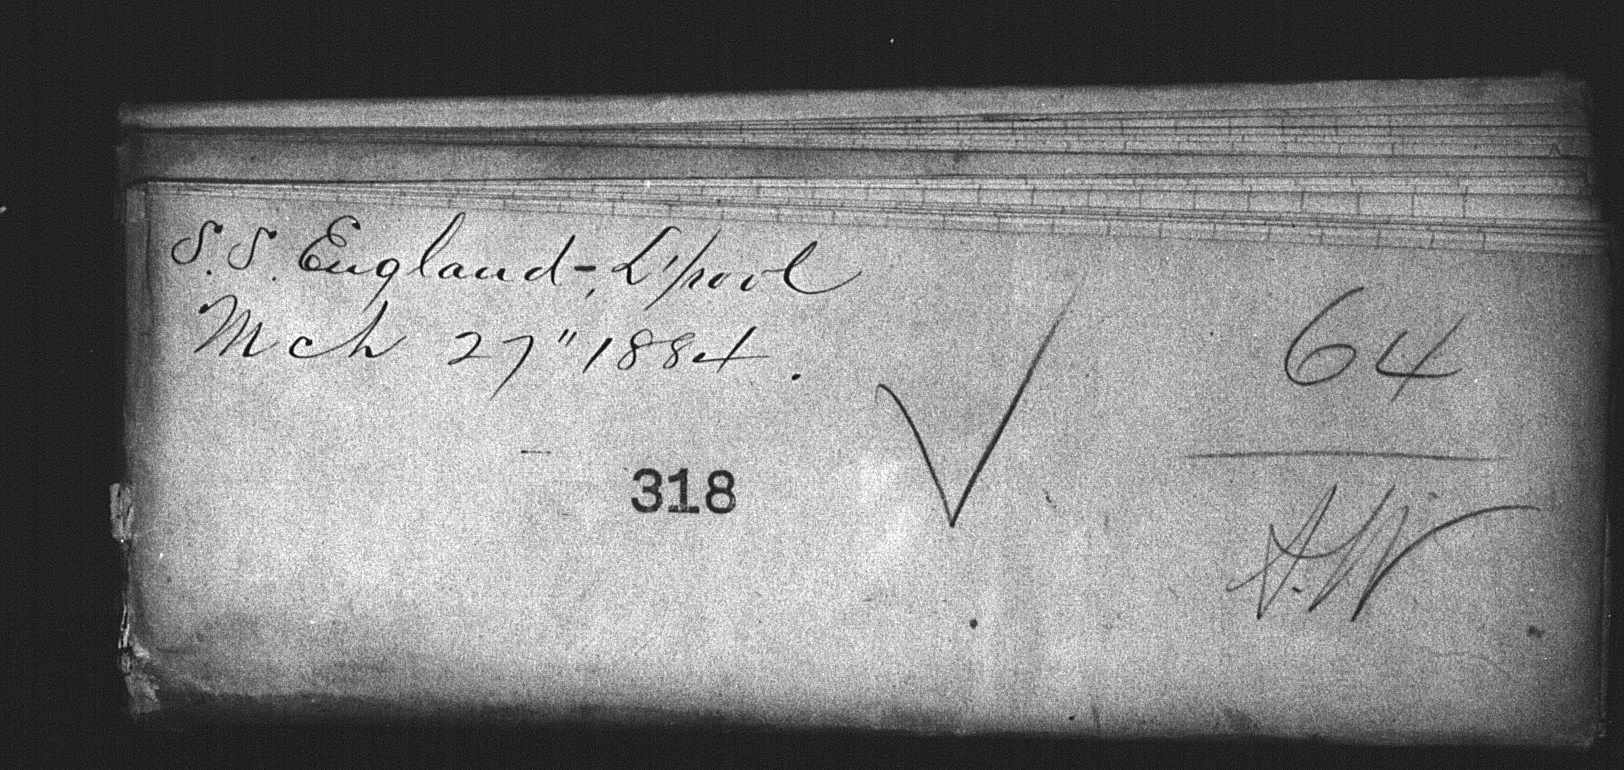 S.S. England-, L'pool
Mch 27" 1884.
64
318
A.W